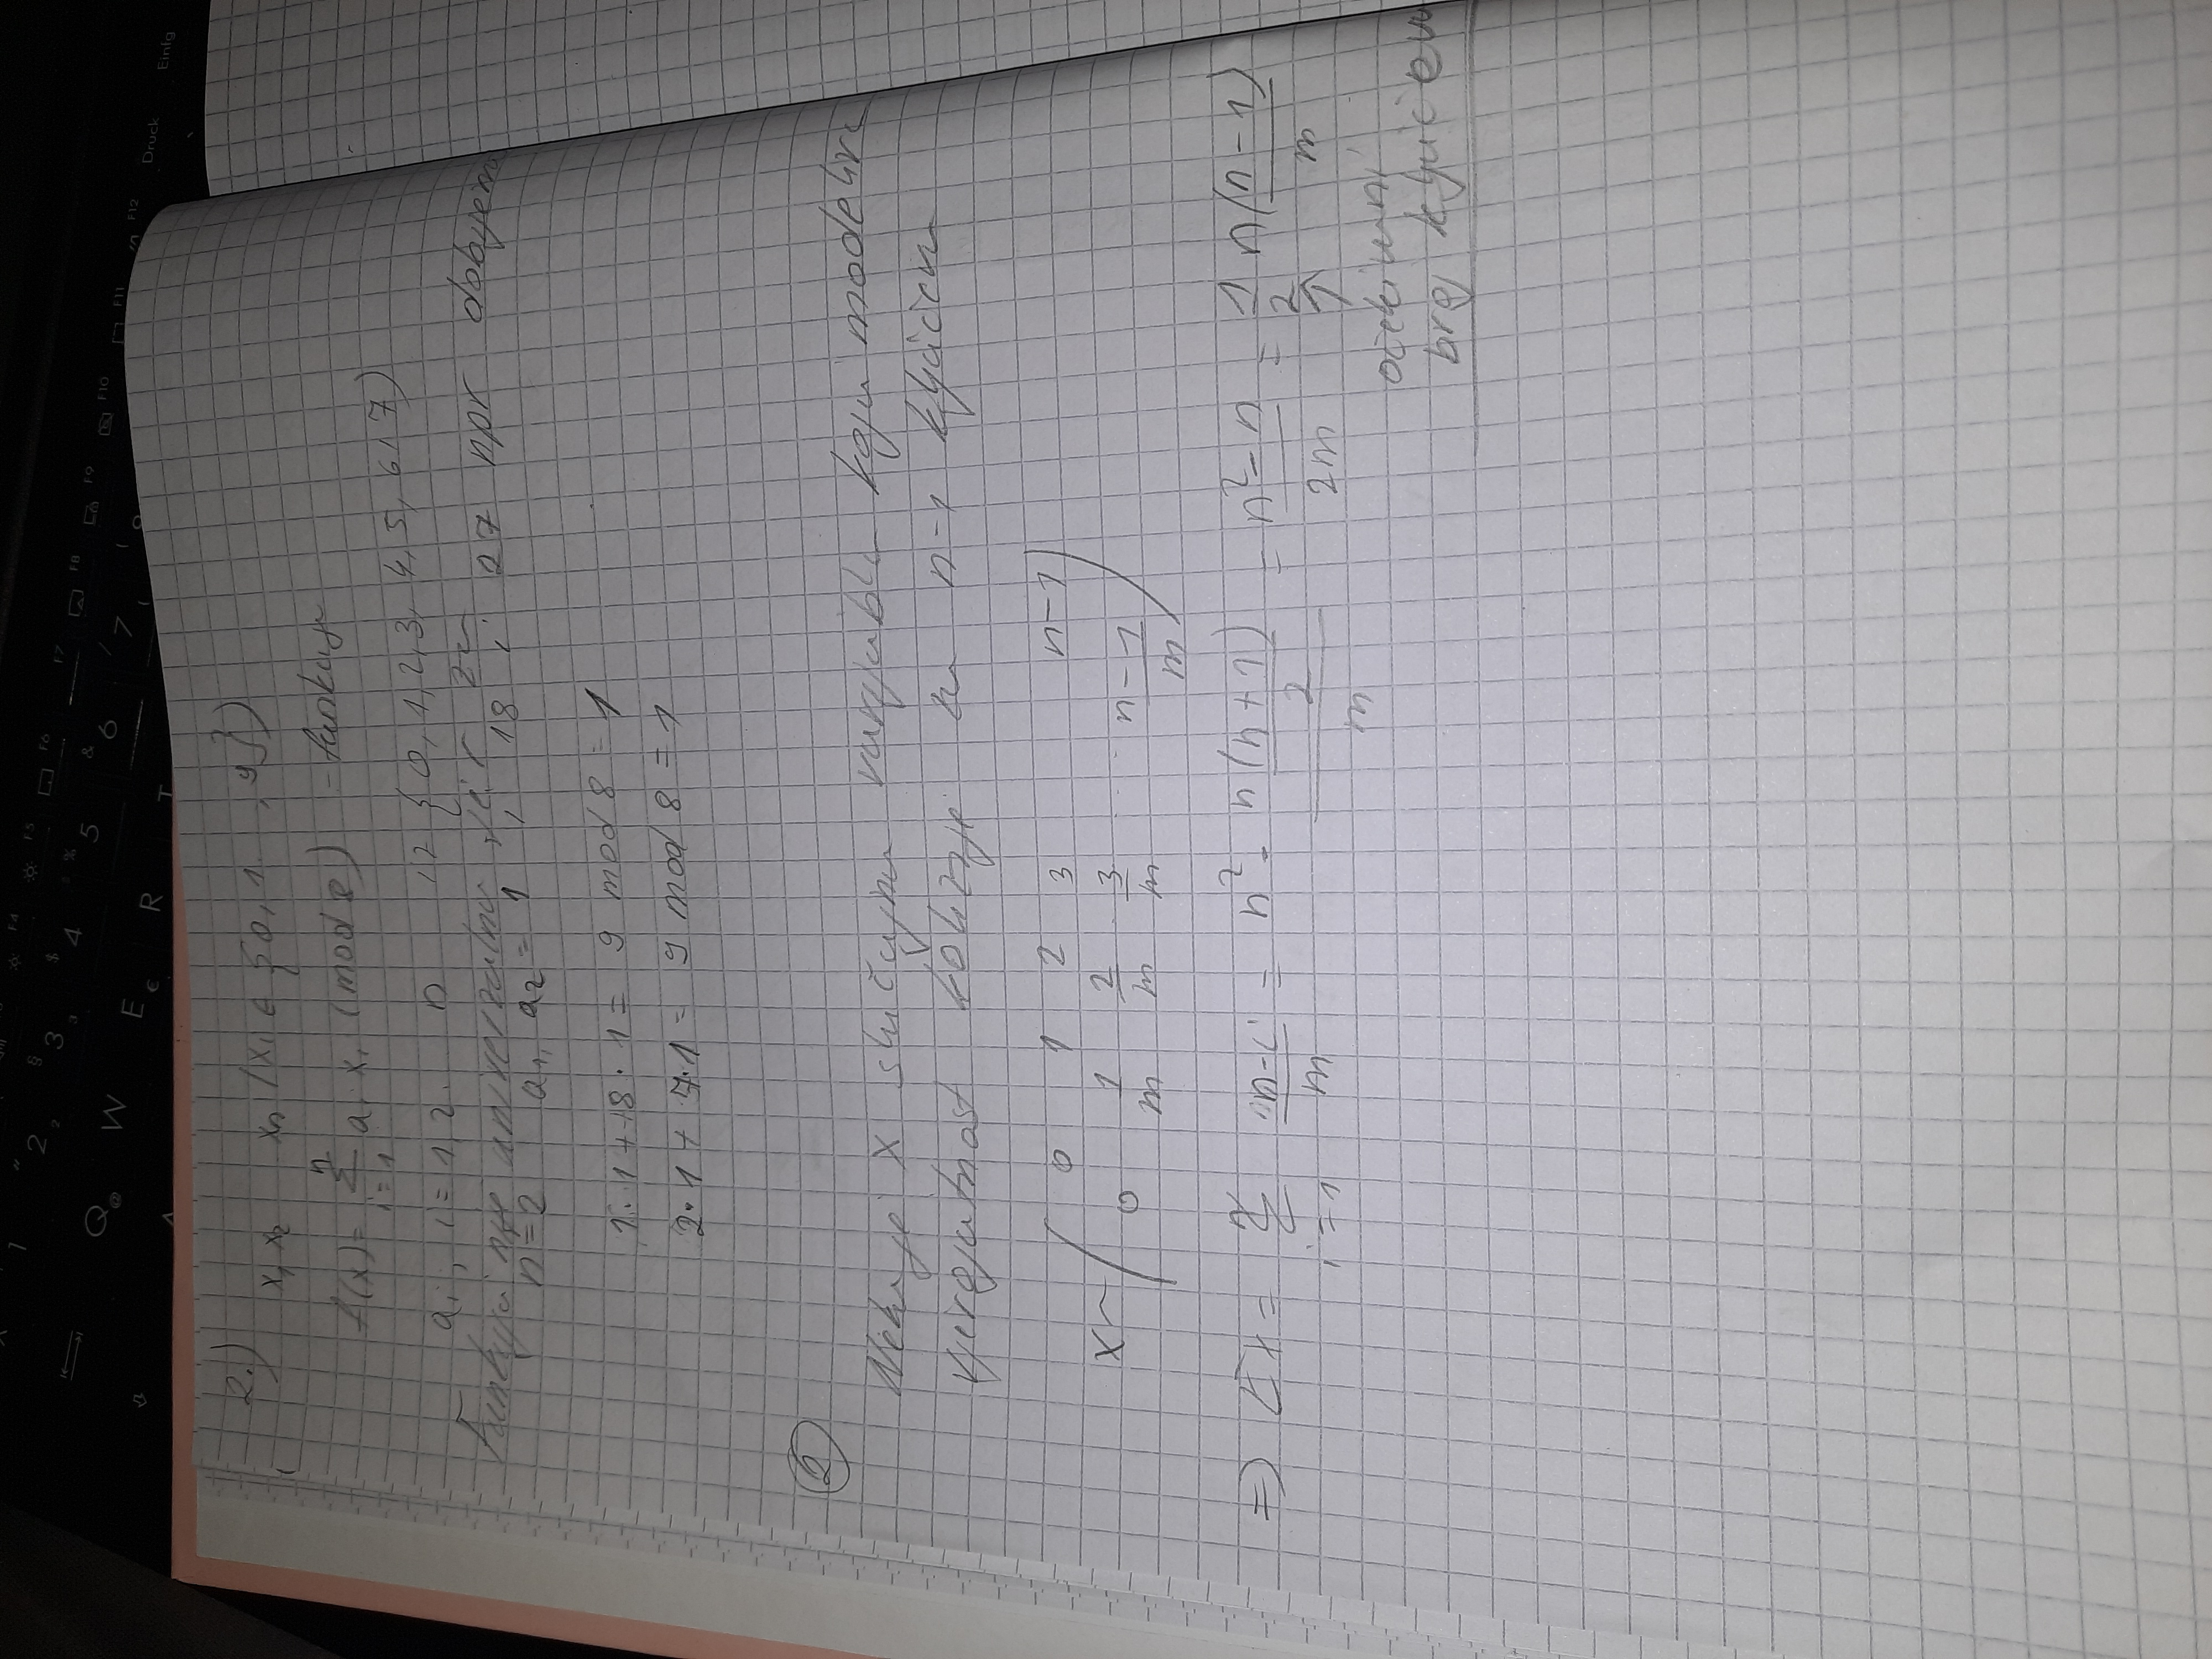 1 2 3 4 5 6 7
F4 F5 F6 F7 F8 F9 F10 F11 F12 Druck Einfg
Q @ W E € R T
2.) x₁ x₂ xₙ (xᵢ ∈ {0, 1. , 9})
f(x) = ∑ᵢ₌₁ⁿ aᵢ xᵢ (mod 8) - funkcija
aᵢ, i = 1, 2. n iz {0, 1, 2, 3, 4, 5, 6, 7)
Funkcija nije univerzalna jer za
n = 2 a₁, a₂ = 1 i 18 i 27 npr dobijemo
1·1 + 8·1 = 9 mod 8 = 1
2·1 + 7·1 = 9 mod 8 = 1
2
Neka je X slučajna varijabla koja modelira
vjerojatnost kolizije za n-1 ključeva
X ~ ( 0 1 2 3 n-1
0 1/m 2/m 3/m ... n-1/m )
=> EX = ∑ᵢ₌₁ⁿ n-i/m = n² - n(n+1)/2 / m = n²-n/2m = 1/2 n(n-1)/m
↑
očekivani
broj ključeva